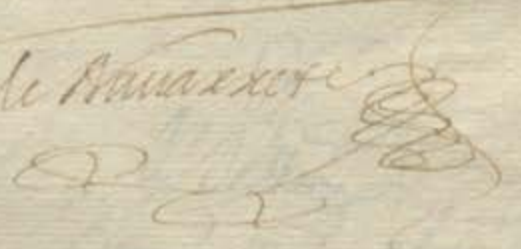 de Navarrete